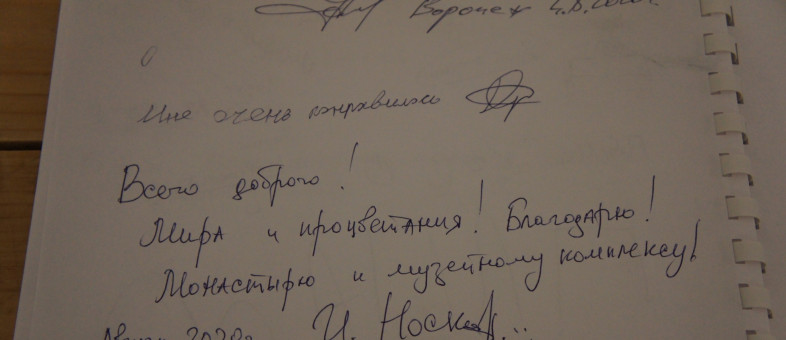 Воронеж
Мне очень понравилось
Всего доброго!
Мира и процветания! Благодарю!
Монастырю и музейному комплексу!
2020г.